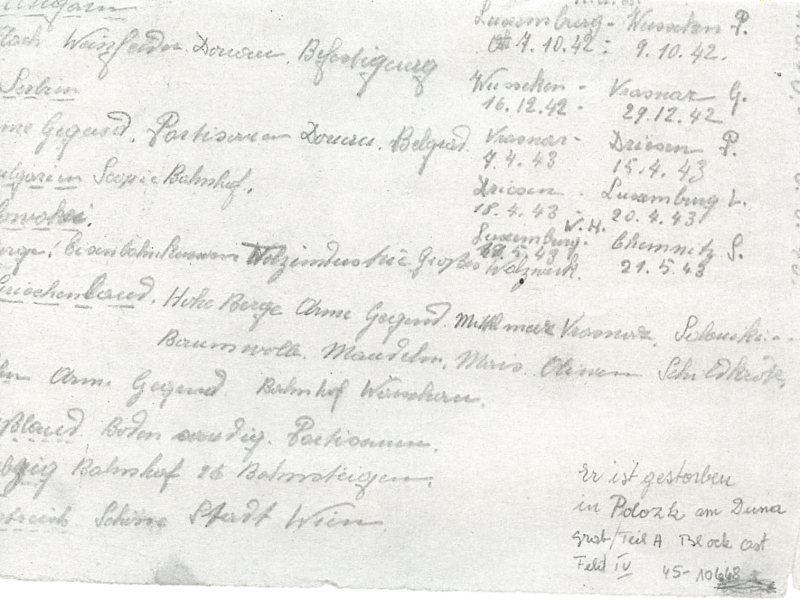 Ungarn
Flach Weinfelder Donau. Befestigung
Serbien
Arme Gegend. Partisanen Donau. Belgrad.
Bulgarien Scopie Bahnhof.
Slowakei.
Berge! Eisenbahn Holzindustrie Großes Walzwerk.
Griechenland. Hohe Berge Arme Gegend. Mittelmeer Krasnar. Saloniki
Baumwolle. Mandeln. Mais. Oliven Schildkröte.
Arme Gegend Bahnhof Warschau.
Rußland Boden sandig. Partisanen.
Leipzig Bahnhof 26 Bahnsteigen.
Östreich Schöne Stadt Wien
Luxemburg - Wusseken P.
7.10.42 - 9.10.42.
Wusseken - Krasnar G.
16.12.42 - 29.12.42
Krasnar - Driesen P.
7.4.43 15.4.43
Driesen - Luxemburg L.
18.4.43 20.4.43
Luxemburg - W.H. Chemnitz S.
19.5.43 21.5.43
Er ist gestorben
in Polozk am Duna
Grab/Teil A Block Ost
Feld IV 45-10668